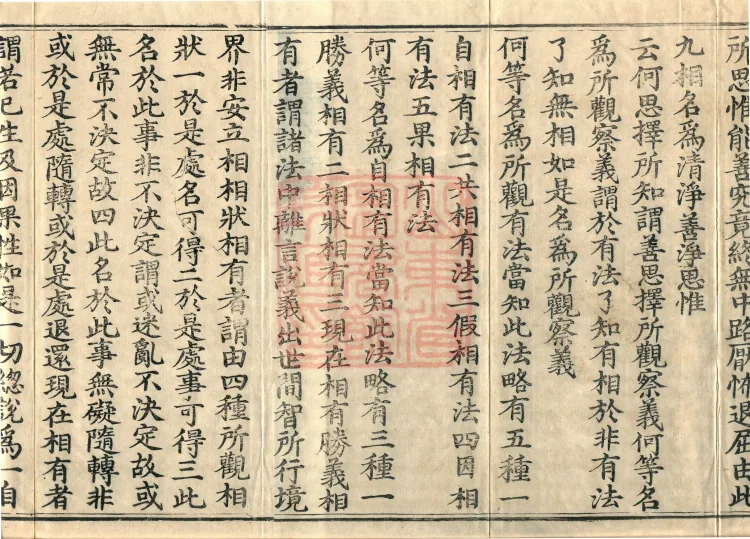 所思惟能善究竟終無中路厭怖退屈由此
九相名爲清淨善淨思惟
云何思擇所知謂善思擇所觀察義何等名
爲所觀察義謂於有法了知有相於非有法
了知無相如是名爲所觀察義
何等名爲所觀有法當知此法略有五種一
自相有法二共相有法三假相有法四因相
有法五果相有法
何等名爲自相有法當知此法略有三種一
勝義相有二相狀相有三現在相有勝義相
有者謂諸法中離言說義出世間智所行境
界非安立相相狀相有者謂由四種所觀相
狀一於是處名可得二於是處事可得三此
名於此事非不決定謂或迷亂不決定故或
無常不決定故四此名於此事無礙隨轉非
或於是處隨轉或於是處退還現在相有者
謂若已生及因果性如是一切總說爲一自